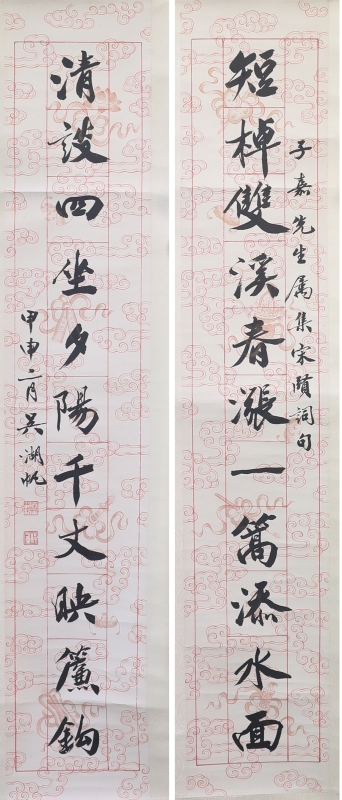 子嘉先生属集宋賢詞句
短棹雙溪春漲一篙添水面
清談四坐夕陽千丈映簾鈎
甲申二月吴湖帆